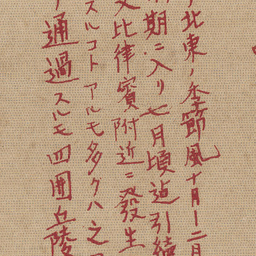 北東ノ季節風十月ー二月
期ニ入リ七月頃迠引続
比律賓附近ニ發生
スルコトアルモ多クハ之
通過スルモ四囲丘陵